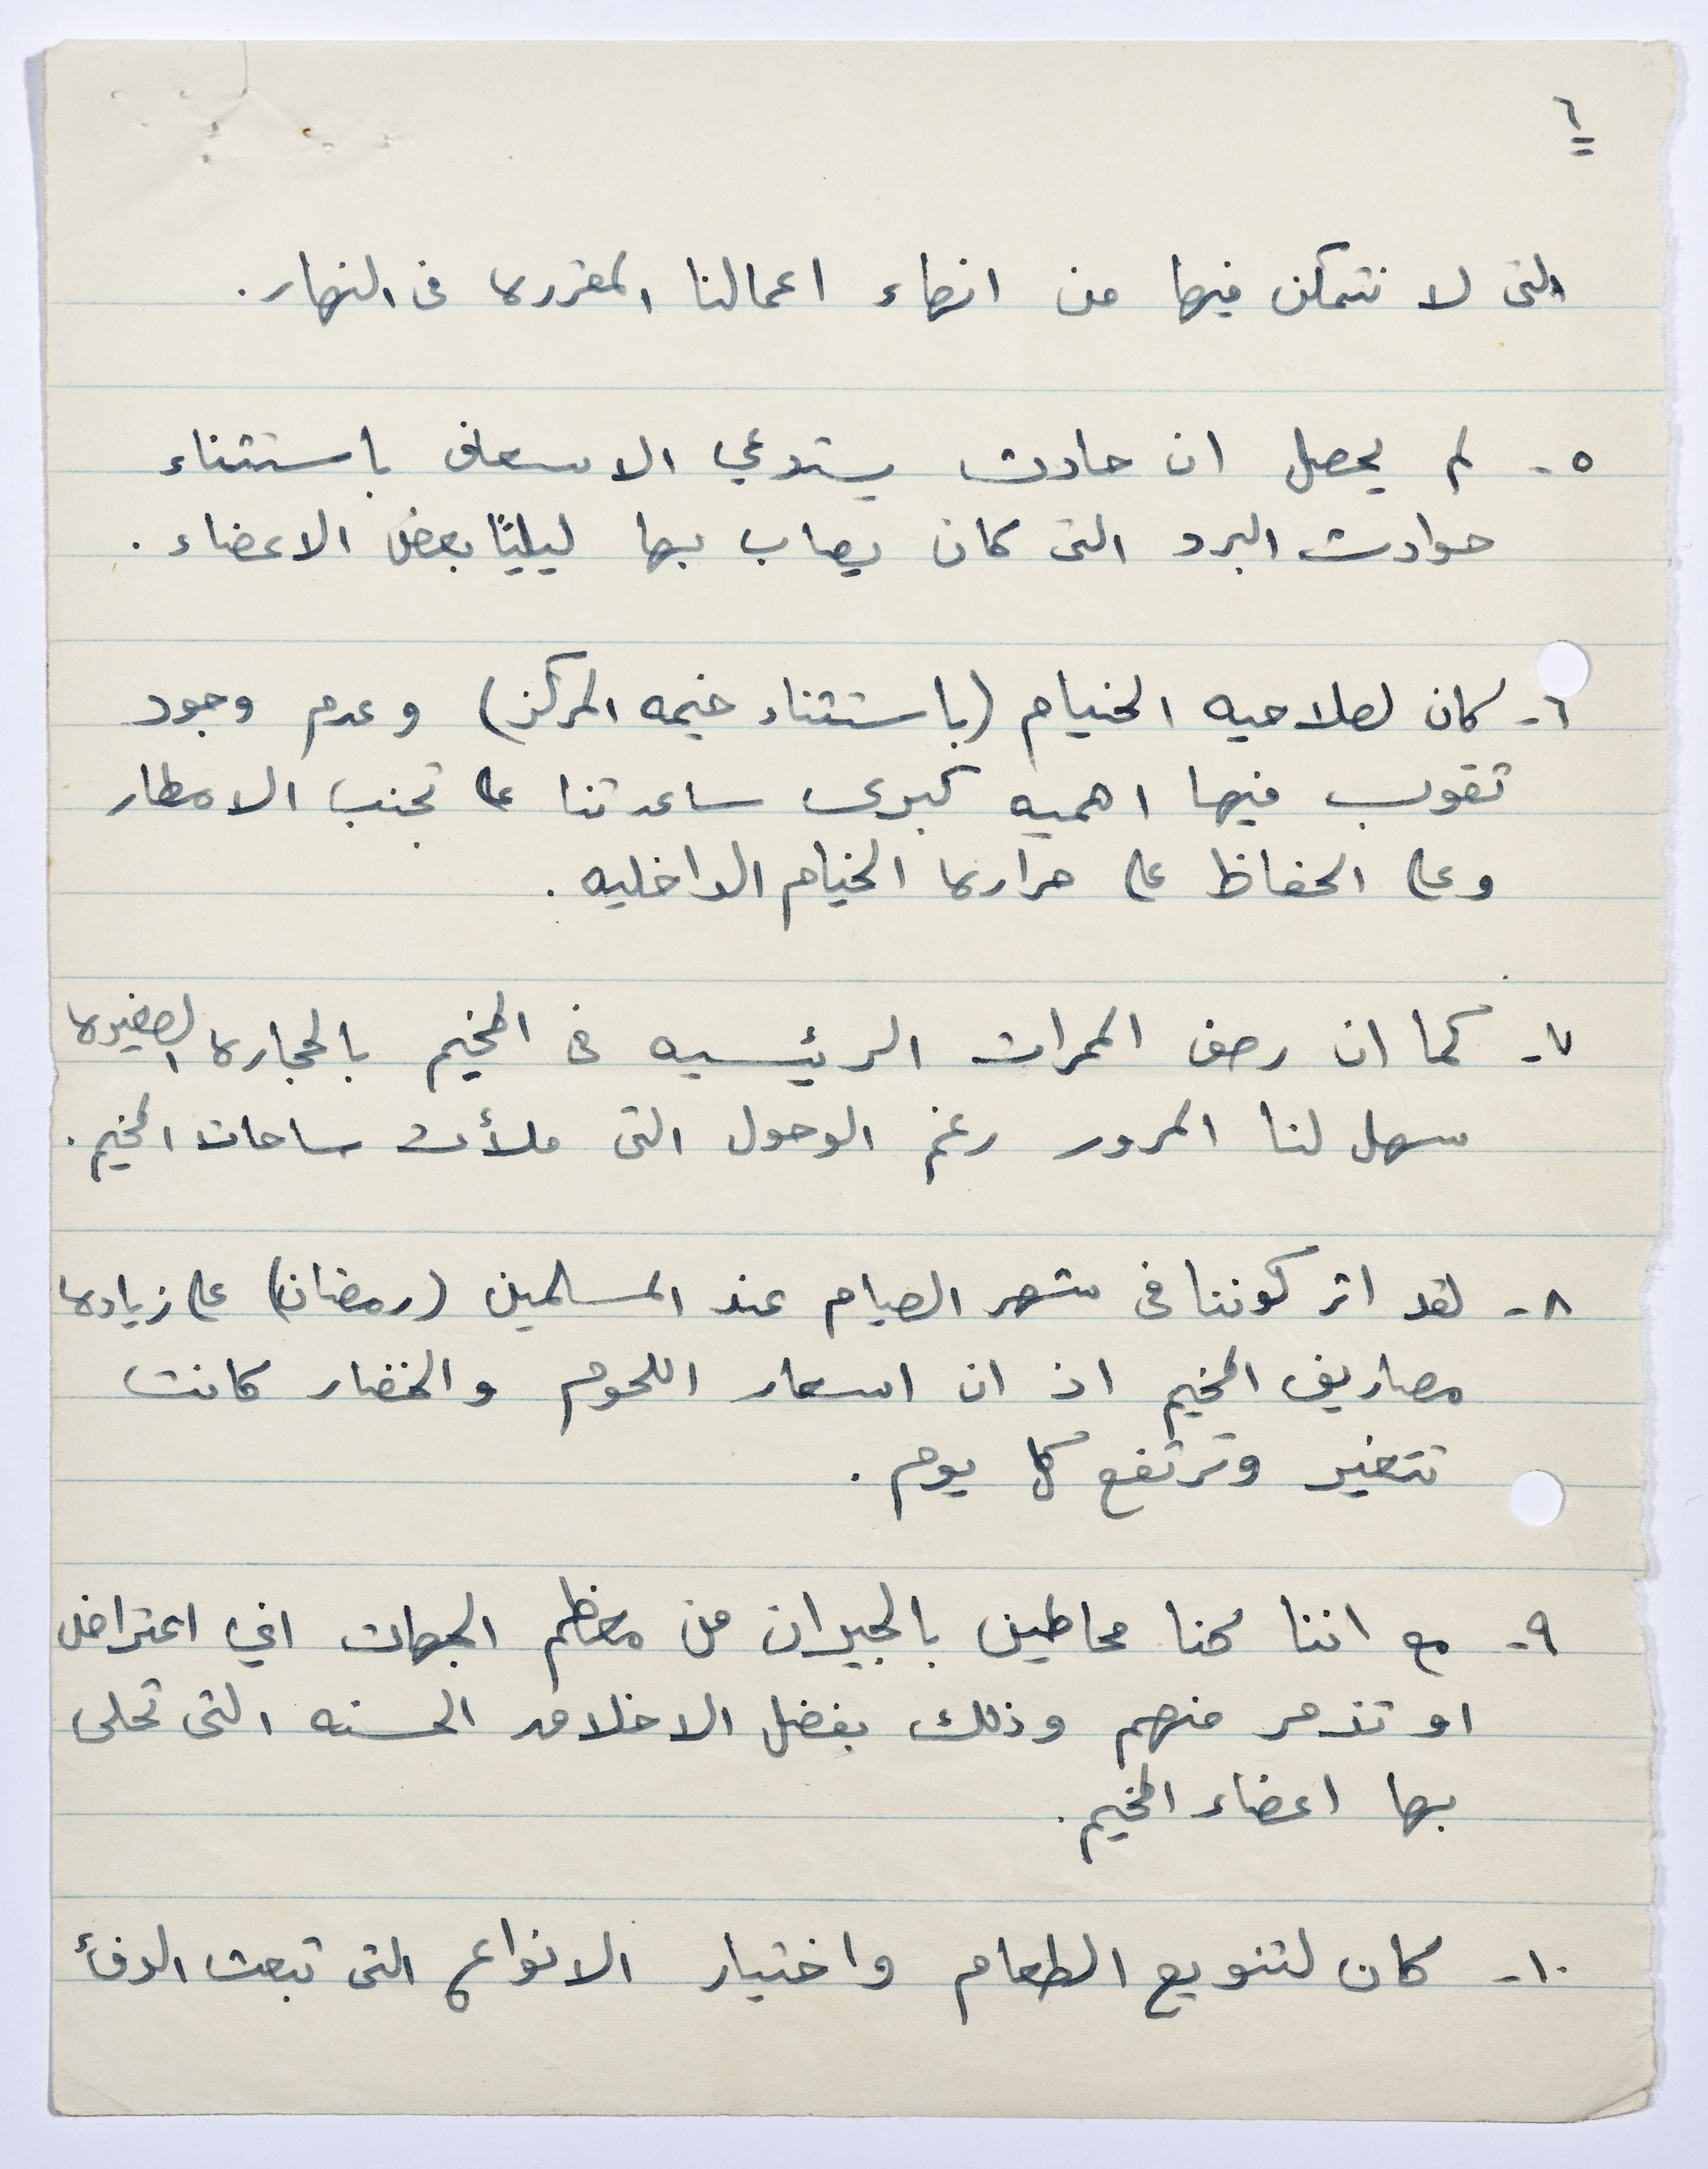 ٦
التى لا نتمكن فيها من انهاء اعمالنا المقررة فى النهار.
٥- لم يحصل ان حادث يستدعي الاسعاف باستثناء
حوادث البرد التى كان يصاب بها ليليًا بعض الاعضاء.
٦- كان لصلاحيه الخيام (باستثناء خيمه المركز) وعدم وجود
تقوب فيها اهميه كبرى ساعدتنا على تجنب الامطار
وعلى الحفاظ على حرارة الخيام الداخليه.
٧- كما ان رصف الممرات الرئيسيه فى المخيم بالحجارة الصغيرة
سهل لنا المرور رغم الوحول التى ملأت ساحات المخيم.
٨- لقد اثر كوننا فى شهر الصيام عند المسلمين (رمضان) على زيادة
مصاريف المخيم اذ ان اسعار اللحوم والخضار كانت
تتغير وترتفع كل يوم.
٩- مع اننا كنا محاطين بالجيران من معظم الجهات اي اعتراض
او تذمر منهم وذلك بفضل الاخلاق الحسنه التى تحلى
بها اعضاء المخيم.
١٠- كان لتنويع الطعام واختيار الانواع التى تبعث الدفأ